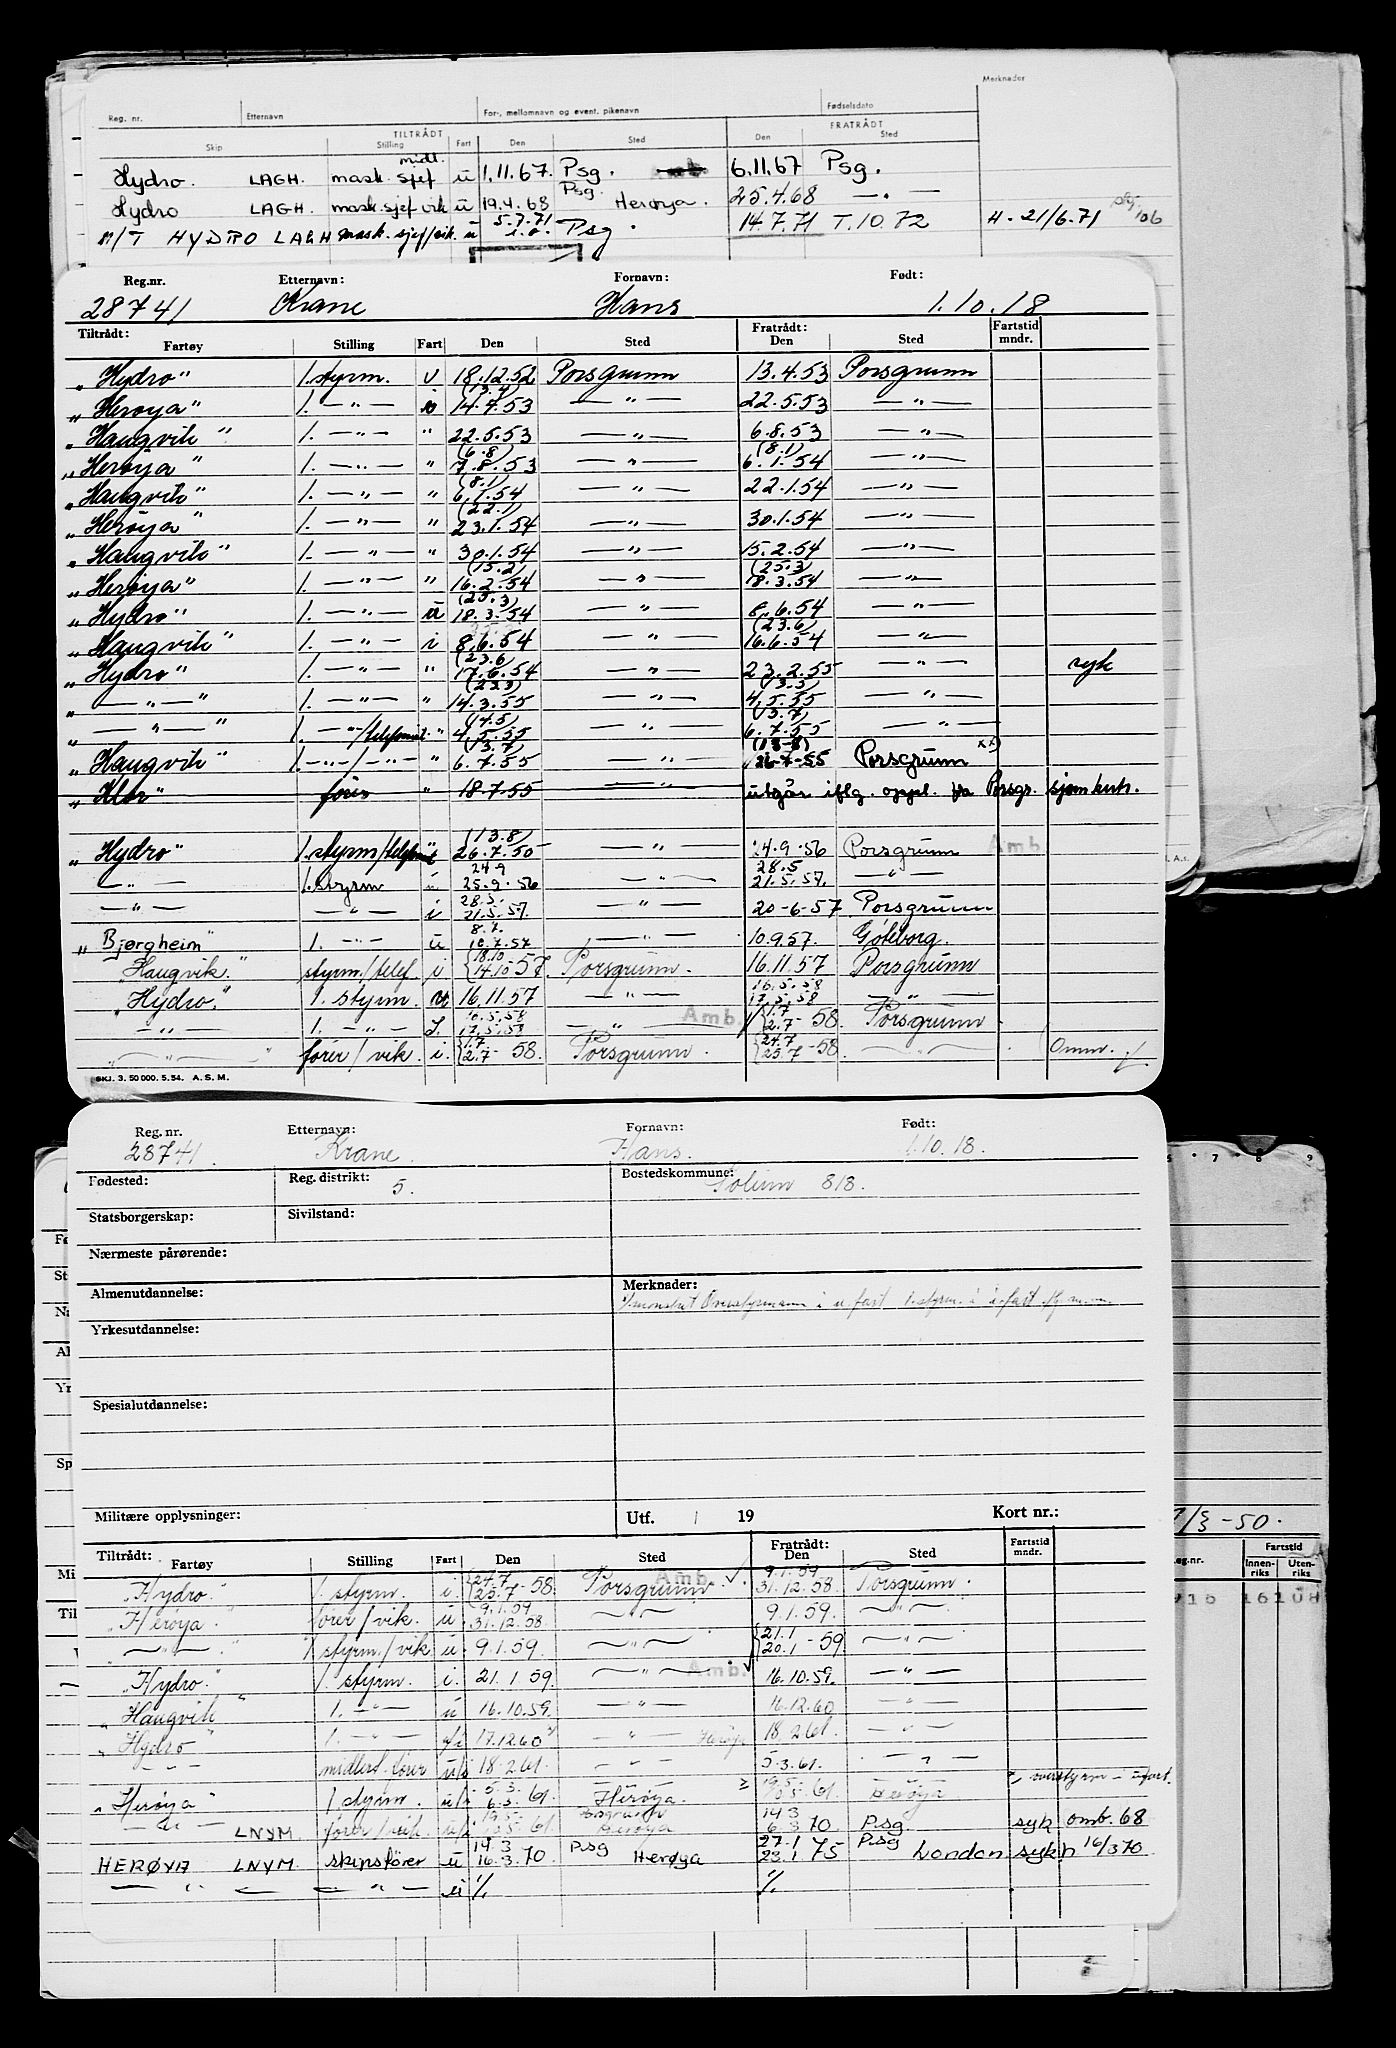 Merknader
Reg. nr. Etternavn For-, mellomnavn og event. pikenavn Fødselsdato
TILTRÅDT FRATRÅDT
Skip Stilling Fart Den Sted Den Sted
midl.
Hydro. LAGH. mask. sjef ü 1.11.67. Psg. 6.11.67 Psg.
Hydro LAGH. mask. sjef vik ü 19.4.68 Psg. Herøya. 25.4.68 — " —
M/T HYDRO LAGH mask. sjef/vik. u 5.7.71 i.o. Psg. 14.7.71 T.10.72 H. 21/6.71
Reg.nr. Etternavn: Fornavn: Født:
28741 Krane Hans 1.10.18
Tiltrådt: Fratrådt: Fartstid
Fartøy Stilling Fart Den Sted Den Sted mndr.
"Hydro" 1. styrm. u 18.12.52 Porsgrunn 13.4.53 Porsgrunn
"Herøya" 1. — " — (13.4) 14.4.53 — " — 22.5.53 — " —
"Haugvik" 1. — " — " 22.5.53 — " — 6.8.53 — " —
"Herøya" 1. — " — " (6.8) 7.8.53 — " — (8.1) 6.1.54 — " —
"Haugvik" 1. — " — " (8.1) 6.1.54 — " — 22.1.54 — " —
"Herøya" 1. — " — " (22.1) 23.1.54 — " — 30.1.54 — " —
"Haugvik" 1. — " — " 30.1.54 — " — 15.2.54 — " —
"Herøya" 1. — " — " (15.2) 16.2.54 — " — (25.3) 18.3.54 — " —
"Hydro" 1. — " — ü (25.3) 18.3.54 — " — 8.6.54 — " —
"Haugvik" 1. — " — i 8.6.54 — " — (23.6) 16.6.54 — " —
"Hydro" 1. — " — " (23.6) 17.6.54 — " — 23.2.55 — " — syk
" — " — " 1. — " — " (23.3) 14.3.55 — " — (13.5) 4.5.55 — " —
" — " — " 1. — " — /telefonist. " (14.5) 4.5.55 — " — (13.7) 6.7.55 — " —
"Haugvik" 1. — " — / — " — " (13.7) 6.7.55 — " — (13-8) 26-7-55 Porsgrunn xx)
"Klor" fører " 18-7-55 — " — utgår iflg. oppl. fra Porsgr. sjømktr.
"Hydro" 1. styrm/telefonist " (13.8) 26.7.55 — " — 24.9.56 Porsgrunn Amb.
— " — 1. styrm ü 24.9 25.9.56 — " — 28.5 21.5.57. — " —
— " — — " — i 28.5. 21.5.57. — " — 20-6-57 Porsgrunn
"Bjørgheim" 1. — " — ü 8.7. 10.7.57 — " — 10.9.57. Göteborg.
"Haugvik." styrm./telef. i {18.10 14.10 57. Porsgrunn. 16.11.57 Porsgrunn
"Hydro." 1. styrm. u 16.11.57 — " — 16.5.58 17.5.58 — " —
— " — 1. — " — I. 16.5.58 17.5.58 — " — Amb. {1.7 2.7-58. Porsgrunn
" — " — " fører/vik. i. {1.7 2.7-58. Porsgrunn. {24.7 25.7-58. — " —
SKJ. 3. 50 000. 5. 54. A. S. M.
Reg.nr. Etternavn: Fornavn: Født:
28741. Krane. Hans. 1.10.18.
Fødested: Reg. distrikt: 5. Bostedskommune: Solum 818.
Statsborgerskap: Sivilstand:
Nærmeste pårørende:
Almenutdannelse: Merknader:
Overstyrmann i u.fart 1. styrm. i i.fart
Yrkesutdannelse:
Spesialutdannelse:
Militære opplysninger: Utf. / 19 Kort nr.: 1/3-50.
Tiltrådt: Fratrådt: Fartstid
Fartøy Stilling Fart Den Sted Den Sted mndr.
Fartstid
Innen-riks Uten-riks
"Hydro." 1. styrm. i. {24.7 25.7-58. Porsgrunn. Amb. 9.1.59 31.12.58. Porsgrunn.
"Herøya." fører/vik. u. 9.1.59 31.12.58. — " — 9.1.59. — " —
" — " — " 1. styrm./vik u. 9.1.59. — " — {21.1 20.1-59. — " —
"Hydro." 1. styrm. i. 21.1.59 — " — Amb. 16.10.59. — " —
"Haugvik" 1. — " — ü 16.10.59. — " — 16.12.60 — " —
"Hydro" 1. — " — 17.12.60 — " — Herøya 18.2.61. — " —
— " — midlert. fører u/i 18.2.61. — " — 5.3.61. — " —
"Herøya" 1 styrm. u/i 5.3. 6.3.61. Herøya. 19.5. 61. Herøya overstyrm i ufart.
— " — LNYM. fører/vik. u/i 19.5. 61. Porsgrunn Herøya 14.3 6.3 70 Psg. syk omb. 68
HERØYA LNYM. skipsfører u 14.3 16.3.70 Psg Herøya 27.1 23.1 75 Psg London sykh 16/3 70
— " — — " — ü % %